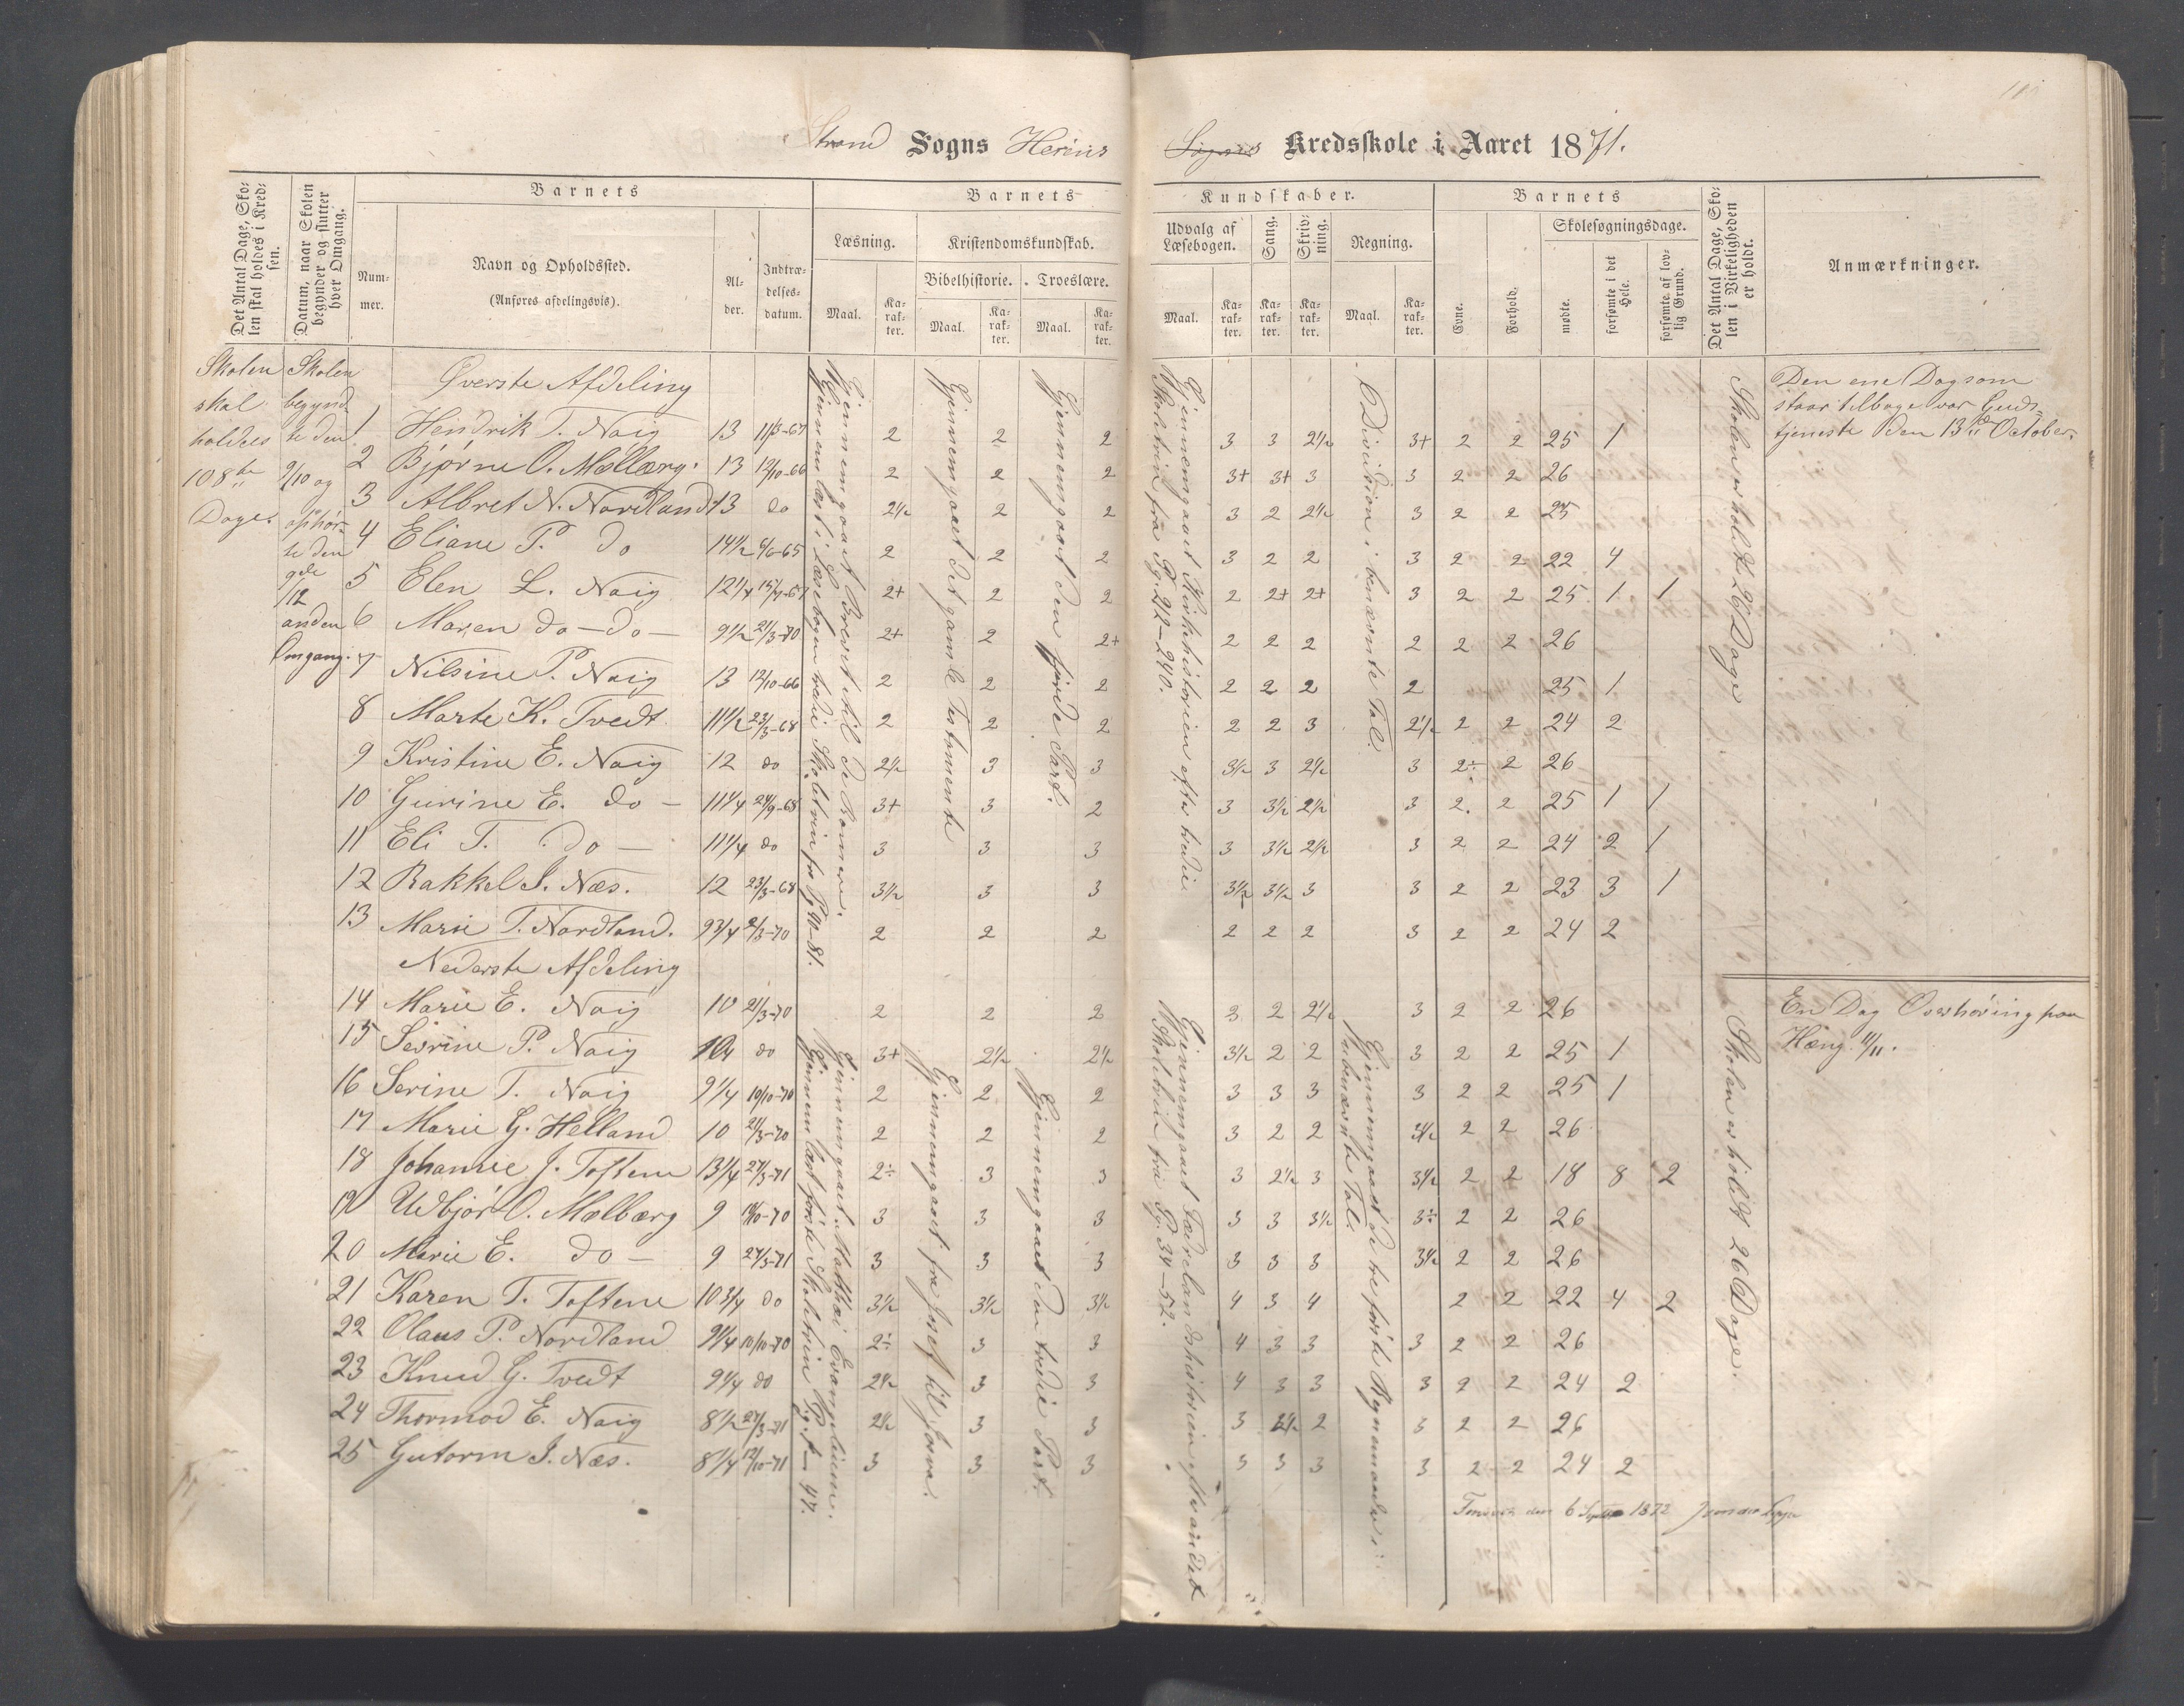 Strand Sogns Herens Sognes Kredsskole i Aaret 1871.
Det Antal Dage, Skolen skal holdes i Kredsen.
Datum, naar Skolen begynder og slutter hver Omgang.
Barnets
Nummer.
Navn og Opholdssted.
(Anføres afdelingsvis).
Alder.
Indtrædelsesdatum.
Barnets Kundskaber.
Læsning.
Kristendomskundskab.
Bibelhistorie.
Troeslære.
Maal.
Karakter.
Maal.
Karakter.
Maal.
Karakter.
Udvalg af Læsebogen.
Sang.
Skrivning.
Regning.
Maal.
Karakter.
Karakter.
Karakter.
Maal.
Karakter.
Barnets
Evne.
Forhold.
Skolesøgningsdage.
mødte.
forsømte i det Hele.
forsømte af lovlig Grund.
Det Antal Dage, Skolen i Virkeligheden er holdt.
Anmærkninger.
Skolen skal holdes 108te Dage.
Skolen begyndte den 9/10 og ophørte den 9de /12 anden Omgang.
Øverste Afdeling
1 Hendrik T. Naig 13 11/3-67 2 2 2 3 3 2½ 3+ 2 2 25 1
2 Bjørne O. Mølbærg. 13 12/10-66 2 2 2 3+ 3+ 3 3 2 2 26
3 Albret N. Nordland 13 do 2½ 2 2 3 2 2½ 3 2 2 25
4 Eliane P. do 14½ 6/6-65 2 2 2 3 2 2 3 2 2 22 4
5 Elen L. Naig 12¼ 15/4-67 2+ 2 2 2 2+ 2+ 3 2 2 25 1 1
6 Maren do - do - 9½ 21/3-70 2+ 2 2+ 2 2 2 2 2 2 26
7 Nilsine P. Naig 13 12/10-66 2 2 2 2 2 2 2 25 1
8 Marte K. Tvedt 11½ 23/3-68 2 2 2 2 2 3 2½ 2 2 24 2
9 Kristine E. Naig 12 do 2½ 3 3 3½ 3 2½ 3 2÷ 2 26
10 Gurine E. do - 11¼ 24/9-68 3+ 3 2 3 3½ 2½ 3 2. 2 25 1 1
11 Eli T. do - 11¼ do 3 3 3 3 3½ 2½ 3 2 2 24 2 1
12 Rakkel J. Næs. 12 23/3-68 3½ 3 3 3½ 3½ 3 3 2 2 23 3 1
13 Marie T. Nordland. 9¾ 21/3-70 2 2 2 2 2 2 3 2 2 24 2
Nederste Afdeling
14 Marie E. Naig 10 21/3-70 2 2 2 3 2 2½ 3 2 2 26
15 Serine P. Naig 10¼ do 3+ 2½ 2½ 3½ 2 2 3 2 2 25 1
16 Serine T. Naig 9¼ 10/10-70 2 2 2 3 3 3 3 2 2 25 1
17 Marie G. Helland 10 21/3-70 2 2 2 3 2 2 3½ 2 2 26
18 Johanne J. Toftene 13¼ 27/3-71 2÷ 3 3 3 2½ 3 3½ 2 2 18 8 2
19 Udbjør O. Mølbærg 9 10/10-70 3 3 3 3 3 3½ 3÷ 2 2 26
20 Marie E. do - 9 27/3-71 3 3 3 3 3 3 3½ 2 2 26
21 Karen T. Toftene 10¾ do 3½ 3½ 3½ 4 3 4 2 2 22 4 2
22 Olaus P. Nordland 9¼ 10/10-70 2÷ 3 3 4 3 3 3 2 2 26
23 Knud G. Tvedt 9¼ do 2½ 3 3 4 3 3 3 2 2 24 2
24 Thormod E. Naig 8½ 27/3-71 2½ 3 3 3 3½ 2 3 2 2 26
25 Gutorm J. Næs. 8¼ 12/10-71 3 3 3 3 3 3 3 2 2 24 2
Gjennemgaaet Brevet til de Romere.
Gjennemlæst i Læsebogen tredie Skoletrin fra Pg 40-81.
Gjennemgaaet det gamle Testamente
Gjennemgaaet den fjerde Part.
Gjennemgaaet Kirkehistorien efter tredie
Skoletrin fra Pg. 212-240.
Division i benævnte Tal.
Skolen er holdt 26 Dage
Den ene Dag som
staar tilbage var Guds-
tjeneste den 13de October.
Gjennemgaaet Matthæi Evangelium.
Gjennemlæst første Skoletrin Pg. 1-47.
Gjennemgaaet fra Josef til Josva.
Gjennemgaaet den tredie Part.
Gjennemgaaet Fædrelandshistorien efter andet
Skoletrin fra Pg. 34-52.
Gjennemgaaet de tre første Regnemaader i
ubenævnte Tal.
Skolen er holdt 26 Dage.
En Dag Overhøring paa
Høng 11/11.
den 6 Septbr 1872